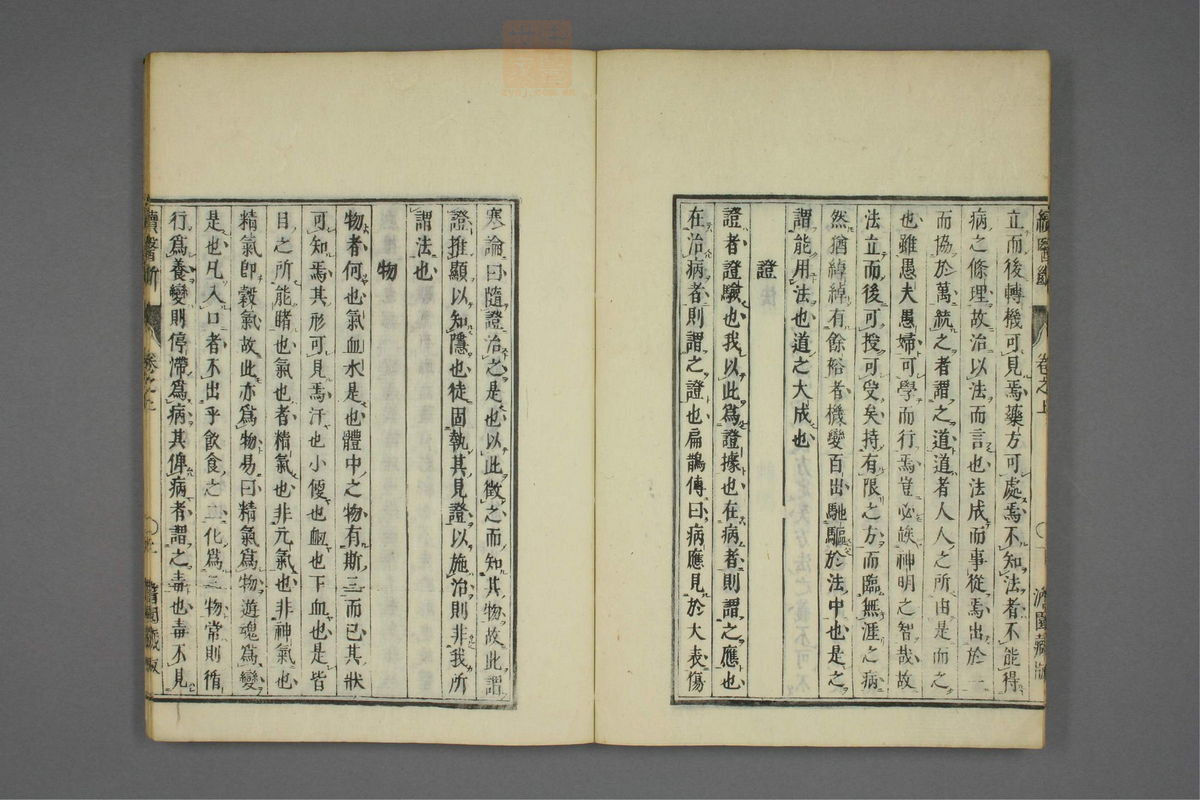 續醫斷 卷之上 濟園藏版
立而後轉機可見焉藥方可處焉不知法者不能得
病之條理故治以法而言也法成而事從焉出於一
而協於萬統之者謂之道道者人人之所由是而之
也雖愚夫愚婦可學而行焉豈必俟神明之智哉故
法立而後可授可受矣持有限之方而臨無涯之病
然猶綽綽有餘裕者機變百出馳驅於法中也是之
謂能用法也道之大成也
證
證者證驗也我以此爲證據也在病者則謂之應也
在治病者則謂之證也扁鵲傳曰病應見於大表傷
寒論曰隨證治之是也以此徵之而知其物故此謂
證推顯以知隱也徒固執其見證以施治則非我所
謂法也
物
物者何也氣血水是也體中之物有斯三而已其狀
可知焉其形可見焉汗也小便也衄也下血也是皆
目之所能睹也氣也者精氣也非元氣也非神氣也
精氣卽穀氣故此亦爲物易曰精氣爲物遊魂爲變
是也凡入口者不出乎飮食之二化爲三物常則循
行爲養變則停滯爲病其俾病者謂之毒也毒不見
續醫斷 卷之上 濟園藏版